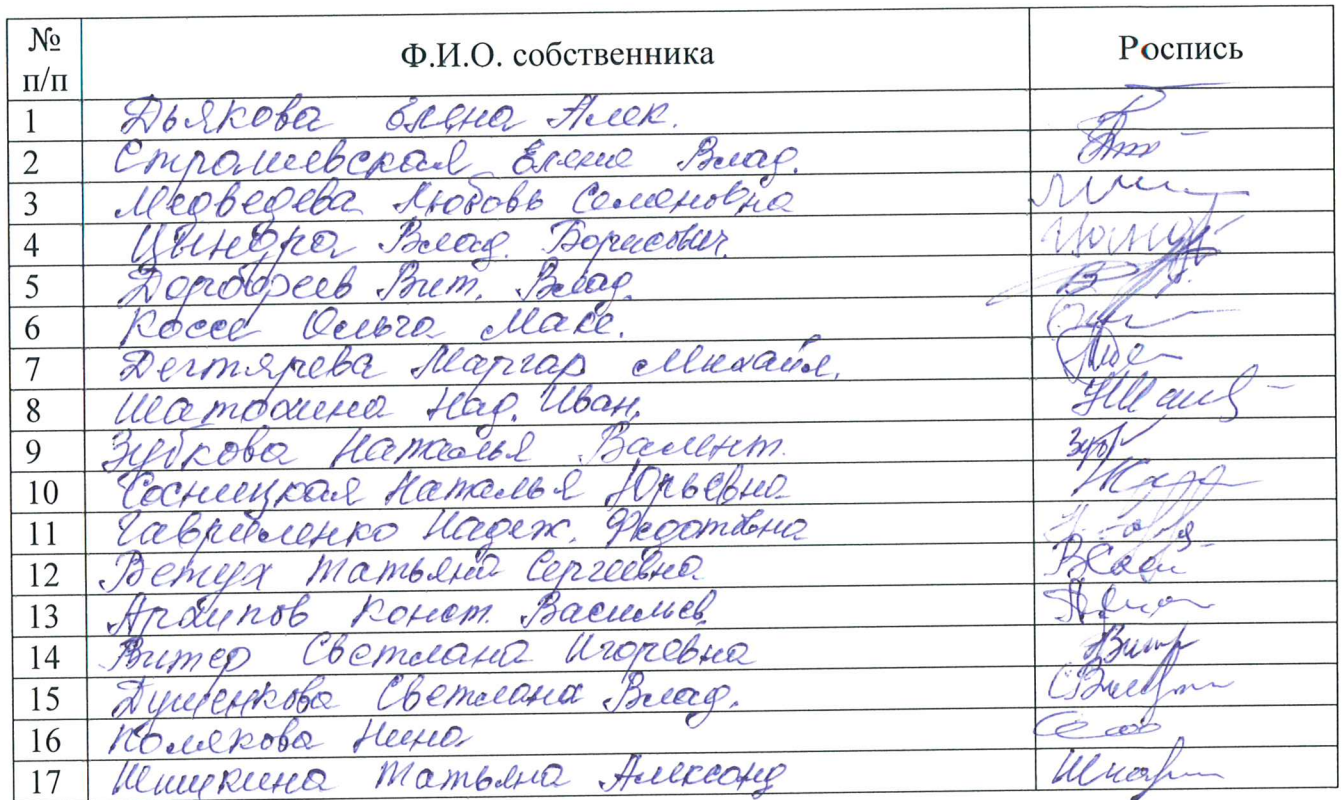 № п/п Ф.И.О. собственника Роспись
1 Дьякова Елена Алек.
2 Елена Влад.
3 Медведева Любовь Семеновна
4 Цындра Влад. Борисович.
5 Вит. Влад.
6 Коссе Ольга Макс.
7 Дегтярева Маргар Михайл.
8 Шатохина Над. Иван.
9 Зубкова Наталья Валент.
10 Сосницкая Наталья Юрьевна
11 Гавриленко Надеж. Федотовна
12 Ветух Татьяна Сергеевна
13 Архипов Конст. Васильев.
14 Витер Светлана Игоревна
15 Душенкова Светлана Влад.
16 Полякова Нина
17 Татьяна Александ